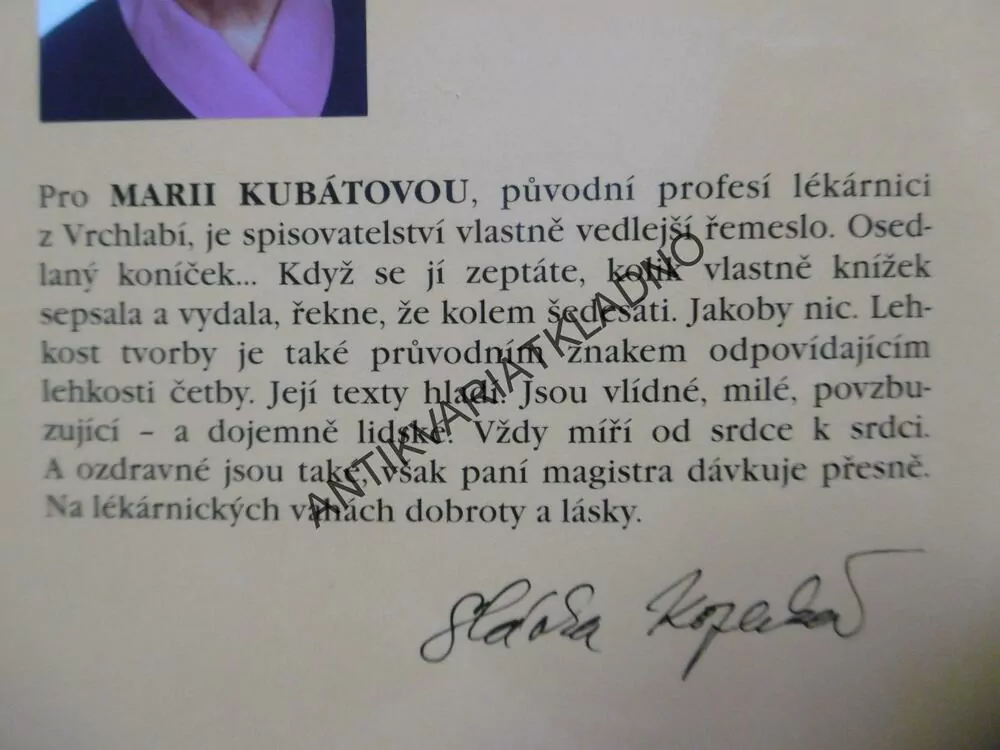 Pro MARII KUBÁTOVOU, původní profesí lékárnici
z Vrchlabí, je spisovatelství vlastně vedlejší řemeslo. Osed-
laný koníček... Když se jí zeptáte, kolik vlastně knížek
sepsala a vydala, řekne, že kolem šedesáti. Jakoby nic. Leh-
kost tvorby je také průvodním znakem odpovídajícím
lehkosti četby. Její texty hladí. Jsou vlídné, milé, povzbu-
zující – a dojemně lidské. Vždy míří od srdce k srdci.
A ozdravné jsou také, však paní magistra dávkuje přesně.
Na lékárnických vahách dobroty a lásky.
ANTIKVARIATKLADNO